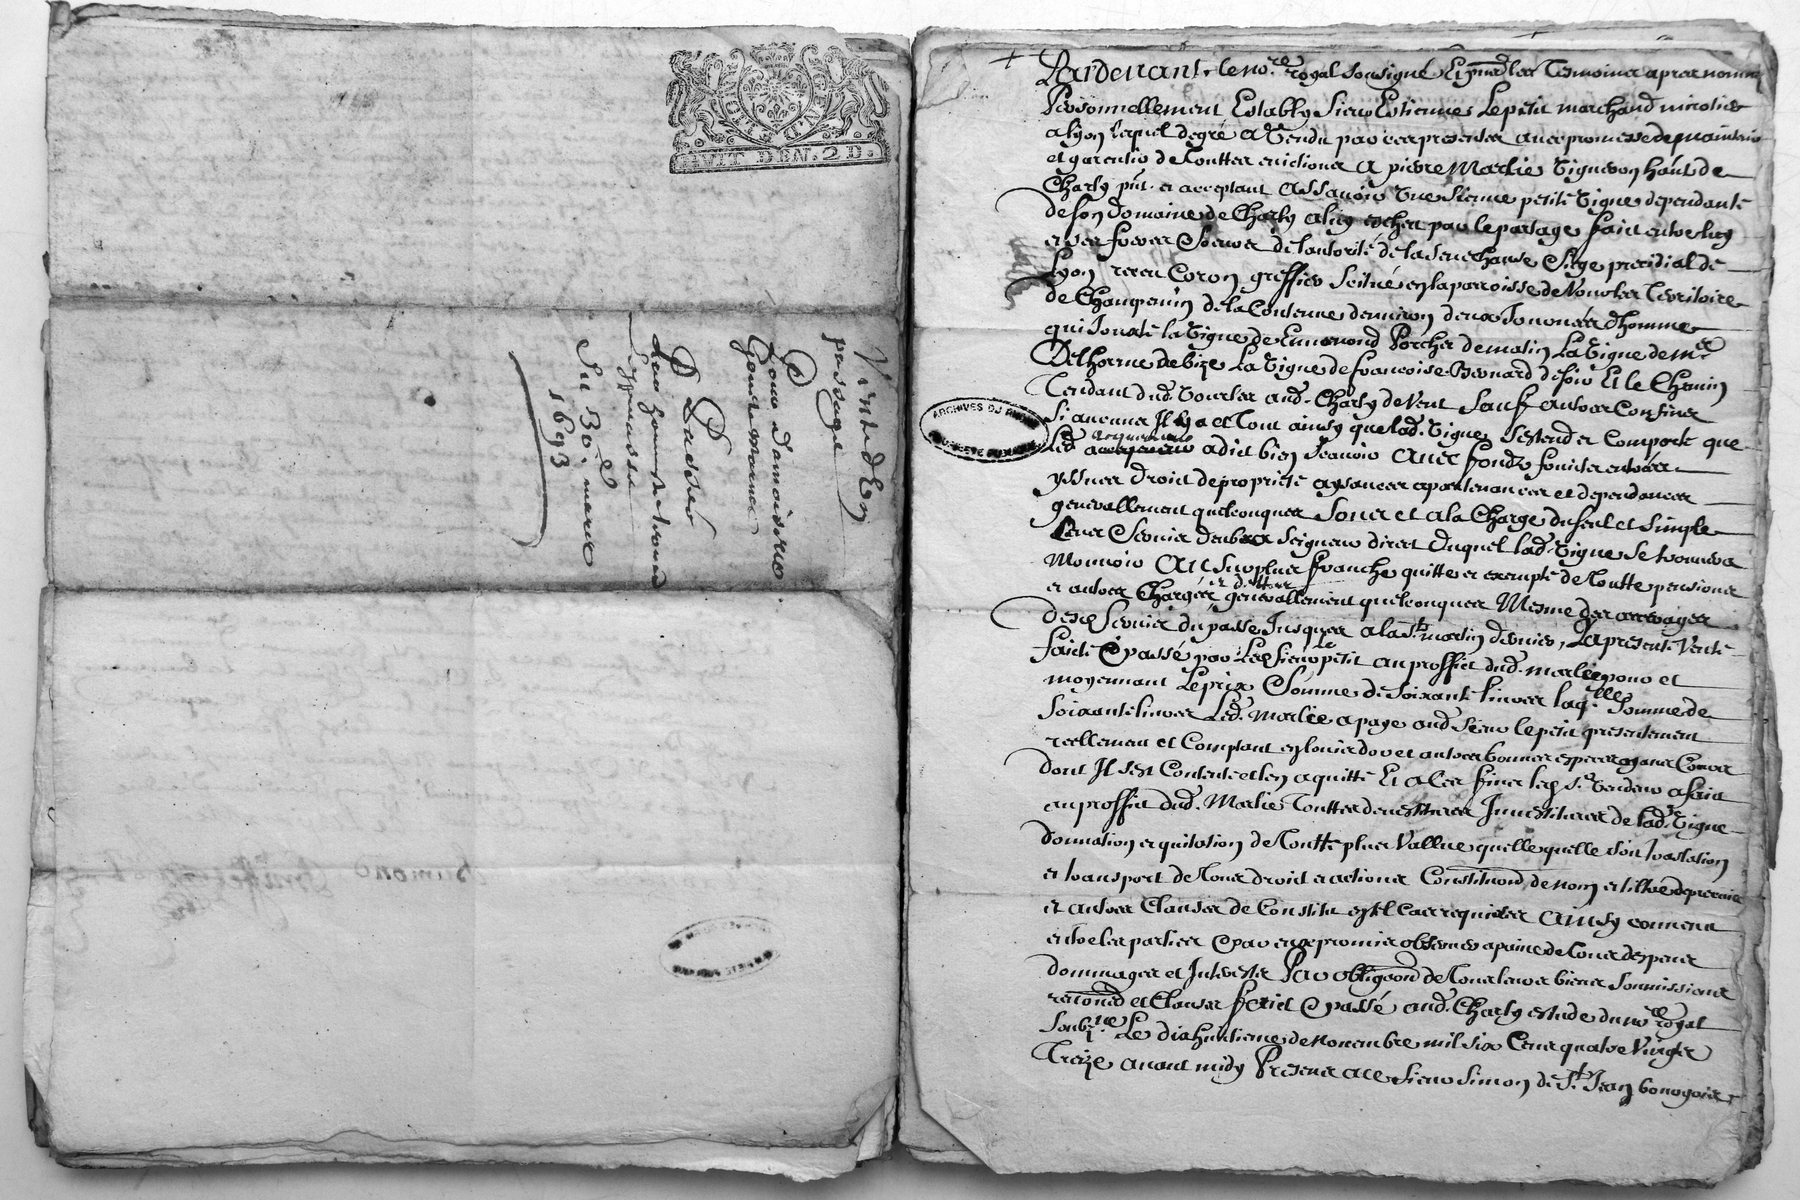 HUIT DEN. 2 D.
Vente d'un
passage
Pour damoiselle
Passée
Du 30e. mars
1693
ARCHIVES DU RHONE
Pardevant le no.re royal soussigné Et pntz les Tesmoins apres nommes
Personnellement Estably Sieur Estienne Lepetit marchand
a lyon lequel de gré a Vendu par ces presentes avec promesse de maintenir
et garentir de Touttes evictions A pierre Marlie Vigneron häut de
Charly pñt et acceptant Assavoir Une sienne petite Vigne dependante
de son domaine de Charly a luy escheu par le partage fait entre luy
et ses freres & soeurs de l'autorité de la senechaussé & siege presidial de
Lyon receu Coron greffier scitué en la parroisse de Vourles Territoire
de Champenin de la Contenue d'environ deux Journées d'homme
qui Jouxte la Vigne de Ennemond Porcher de matin La Vigne de Mr
Delhorme de bize La Vigne de francoise Bernard de soir Et le Chemin
Tendant dud. Vourles aud. Charly de Vent Sauf autres Confins
Si aucuns Il y a et Tout ainsy que lad. Vigne s'estend et Comporte que
Led. acquereur a dit bien scavoir Avec fondz fruits entrées
yssues droit de proprieté aysances apartenances et dependances
generallement quelconques Sous et a la Charge du seul et simple
Cens & servis deub au seigneur direct duquel lad. Vigne se trouvera
Mouvoir Au surplus franche quitte et exempte de Toutte pensions
et autres Charges et dettes generallement quelconques Mesme des arrerages
desd. servis du passé Jusques a la St. martin dernier, La presente Vente
faite & passé par Led. sieur Lepetit au proffict dud. marlie pour et
moyennant Le prix & somme de soixante livres laq.lle somme de
soixante livres Led. Marlie a payé aud. sieur lepetit presentement
reellement et Comptant en louis d'or et autres bonnes especes ayans Cours
dont Il s'est Contenté et l'en a quitté Et a ces fins led. s.r Vendeur a fait
au proffict dud. Marlie Touttes devestitures Investitures de lad. Vigne
donnation et quitation de Toutte plus Vallue quelle quelle soit translation
et transport de Tous droit et actions Constitution de nom et tiltre de precaire
et autres Clauses de Constitut en tel cas requises Ainsy convenu
entre les parties & par eux promis observer a peine de Tous despens
dommages et Interests Par obligaon de Tous leurs biens Soumissions
renonõns et Clauses fait & passé aud. Charly estude du no.re royal
soubz.ne Le dixhuitieme de Novembre mil six Cens quatre Vingts
Treize avant midy Presens a ce sieur Simon de St. Jean bourgois